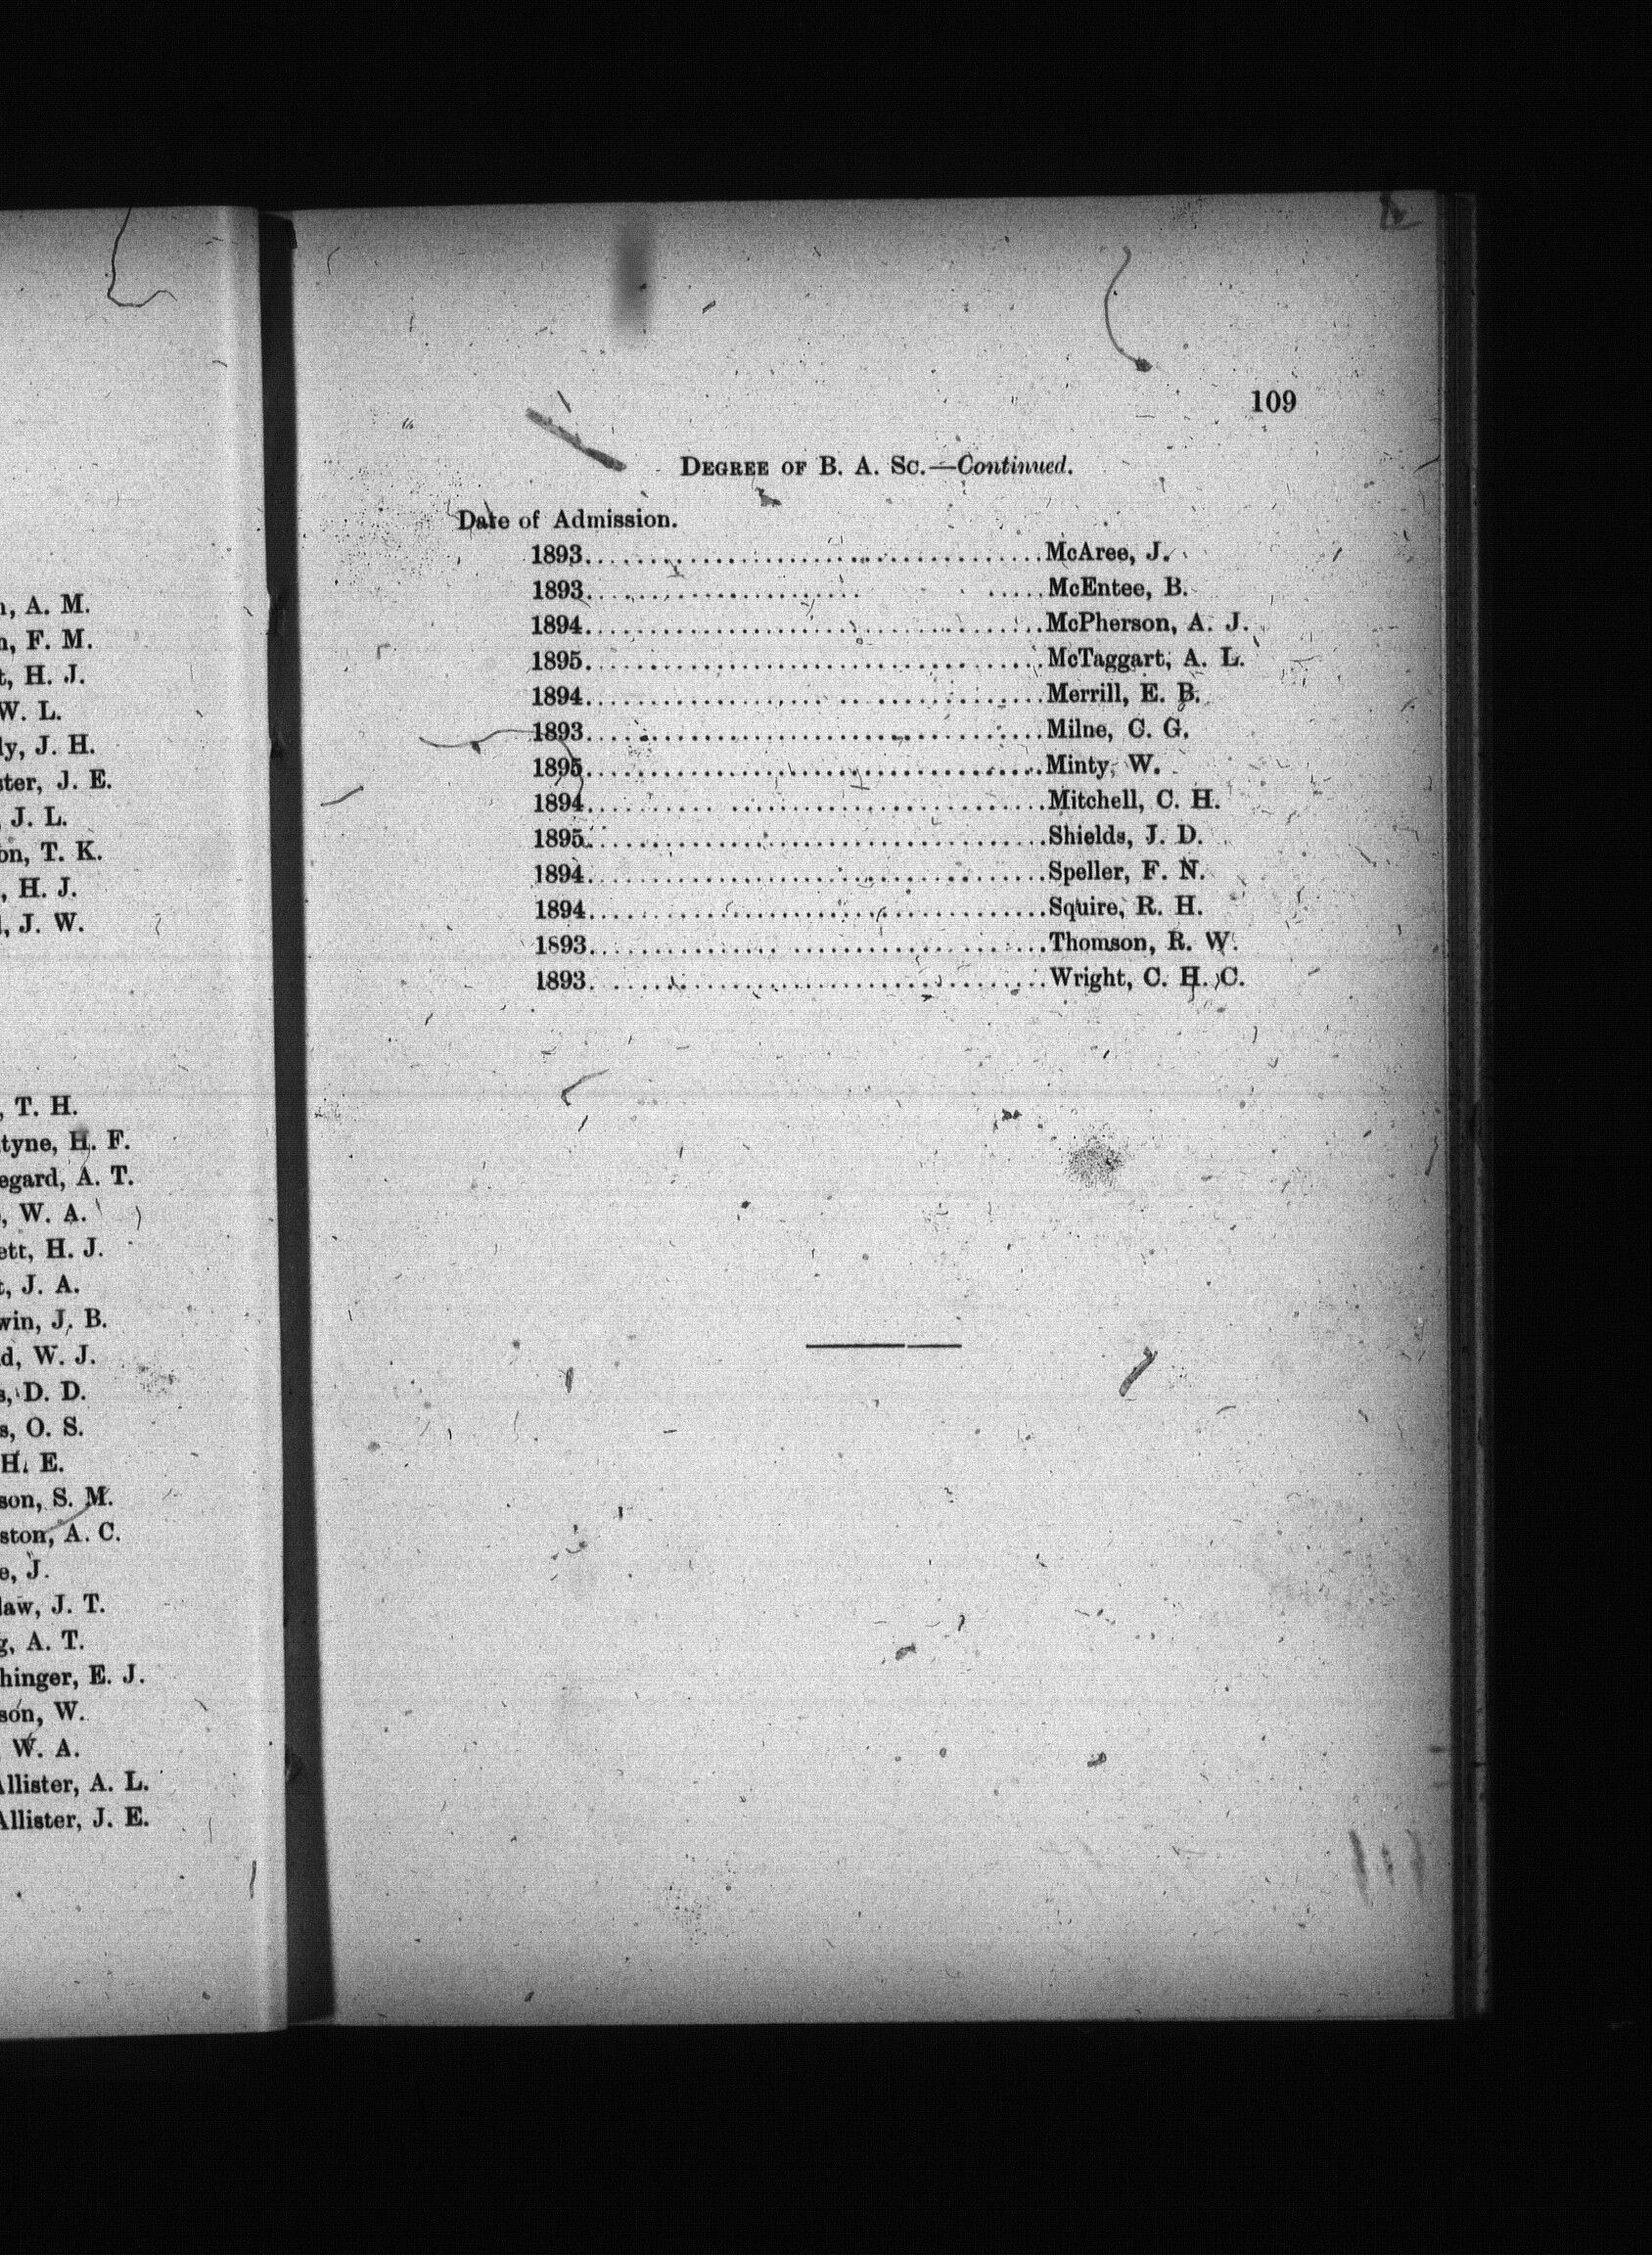 A. M.
F. M.
H. J.
W. L.
J. H.
J. E.
J. L.
T. K.
H. J.
J. W.
T. H.
H. F.
A. T.
W. A.
H. J.
J. A.
J. B.
W. J.
D. D.
O. S.
H. E.
S. M.
A. C.
J.
J. T.
A. T.
E. J.
W.
W. A.
Allister, A. L.
Allister, J. E.
109
DEGREE OF B. A. SC.—Continued.
Date of Admission.
1893........................................McAree, J.
1893..................... .....McEntee, B.
1894........................................McPherson, A. J.
1895........................................McTaggart, A. L.
1894........................................Merrill, E. B.
1893........................................Milne, C. G.
1895........................................Minty, W.
1894........................................Mitchell, C. H.
1895........................................Shields, J. D.
1894........................................Speller, F. N.
1894........................................Squire, R. H.
1893........................................Thomson, R. W.
1893........................................Wright, C. H. C.